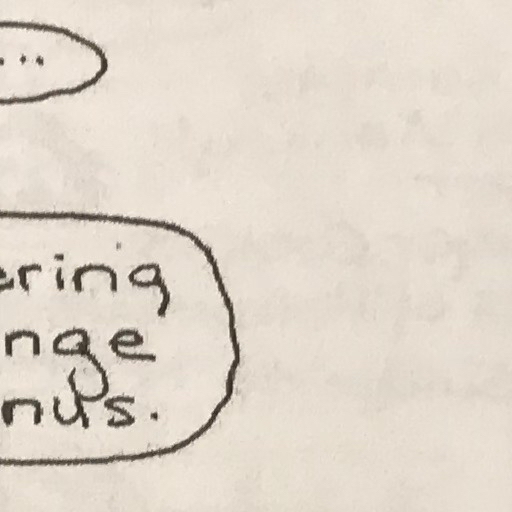 ...
ering
nge
nus.